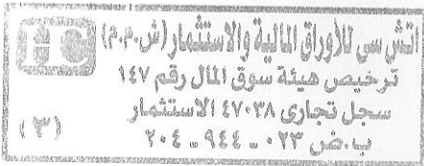 اتش سي للأوراق المالية والاستثمار (ش.م.م)
ترخيص هيئة سوق المال رقم ١٤٧
سجل تجارى ٤٧٠٣٨ الاستثمار
ب.ض ٠٢٣ - ٩٤٤ - ٢٠٤
(٣)
HC